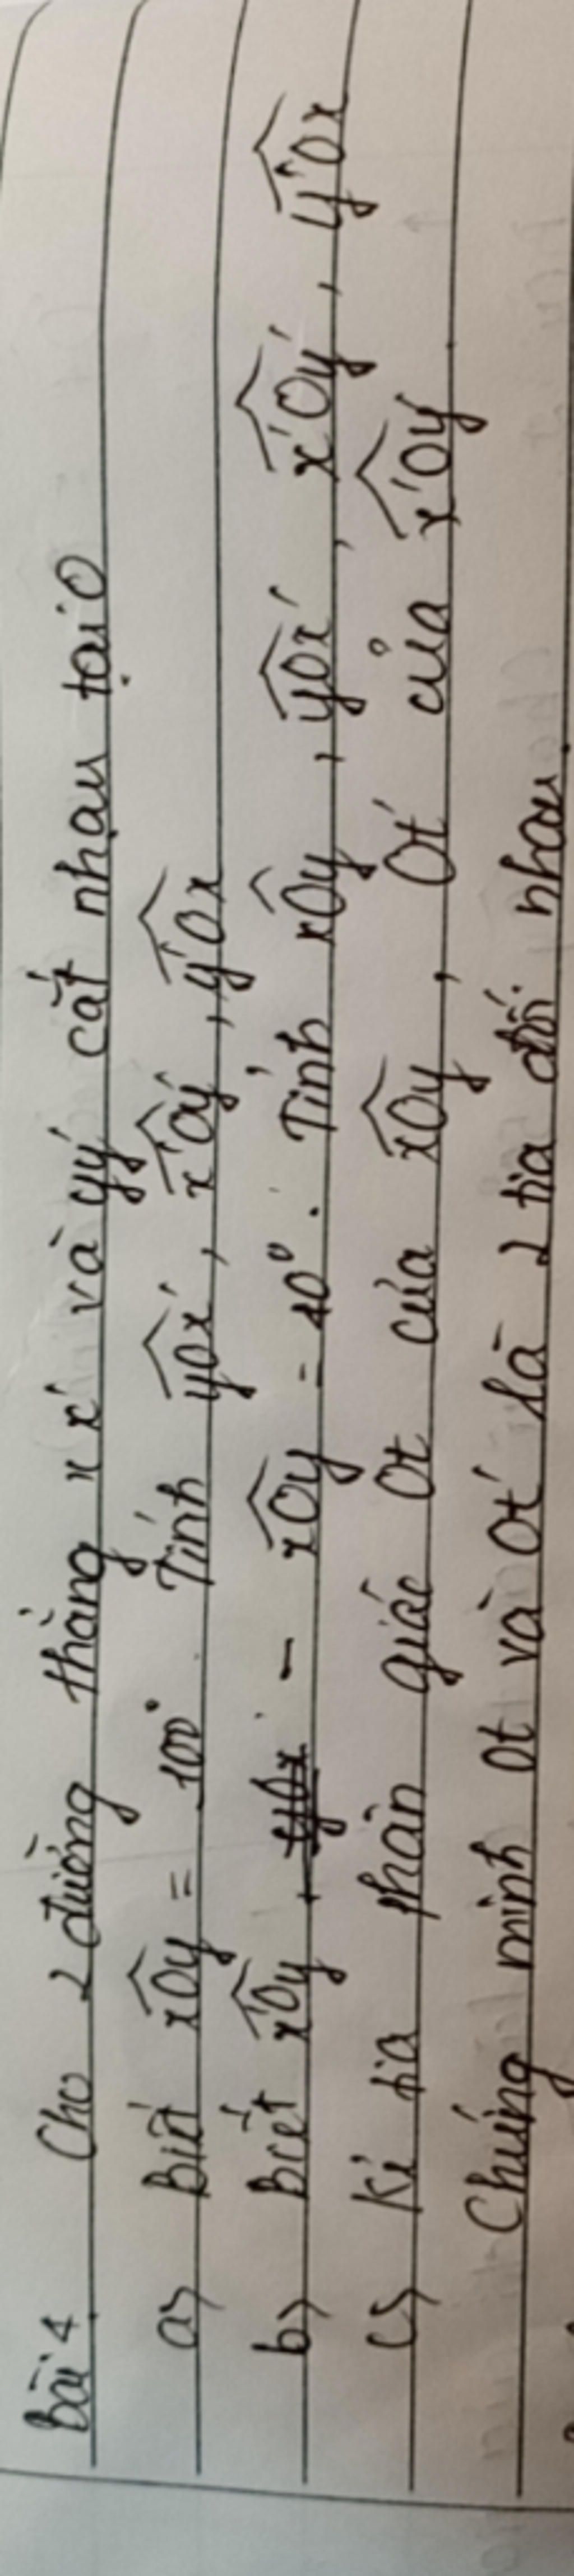 Bài 4 Cho 2 đường thẳng xx' và yy' cắt nhau tại O
a, Biết xOy = 100°. Tính yOx', x'Oy', y'Ox
b, Biết x'Oy - xOy = 40°. Tính xOy, yOx', x'Oy', y'Ox
c, Kẻ tia phân giác Ot của xOy, Ot' của x'Oy'
Chứng minh Ot và Ot' là 2 tia đối nhau.